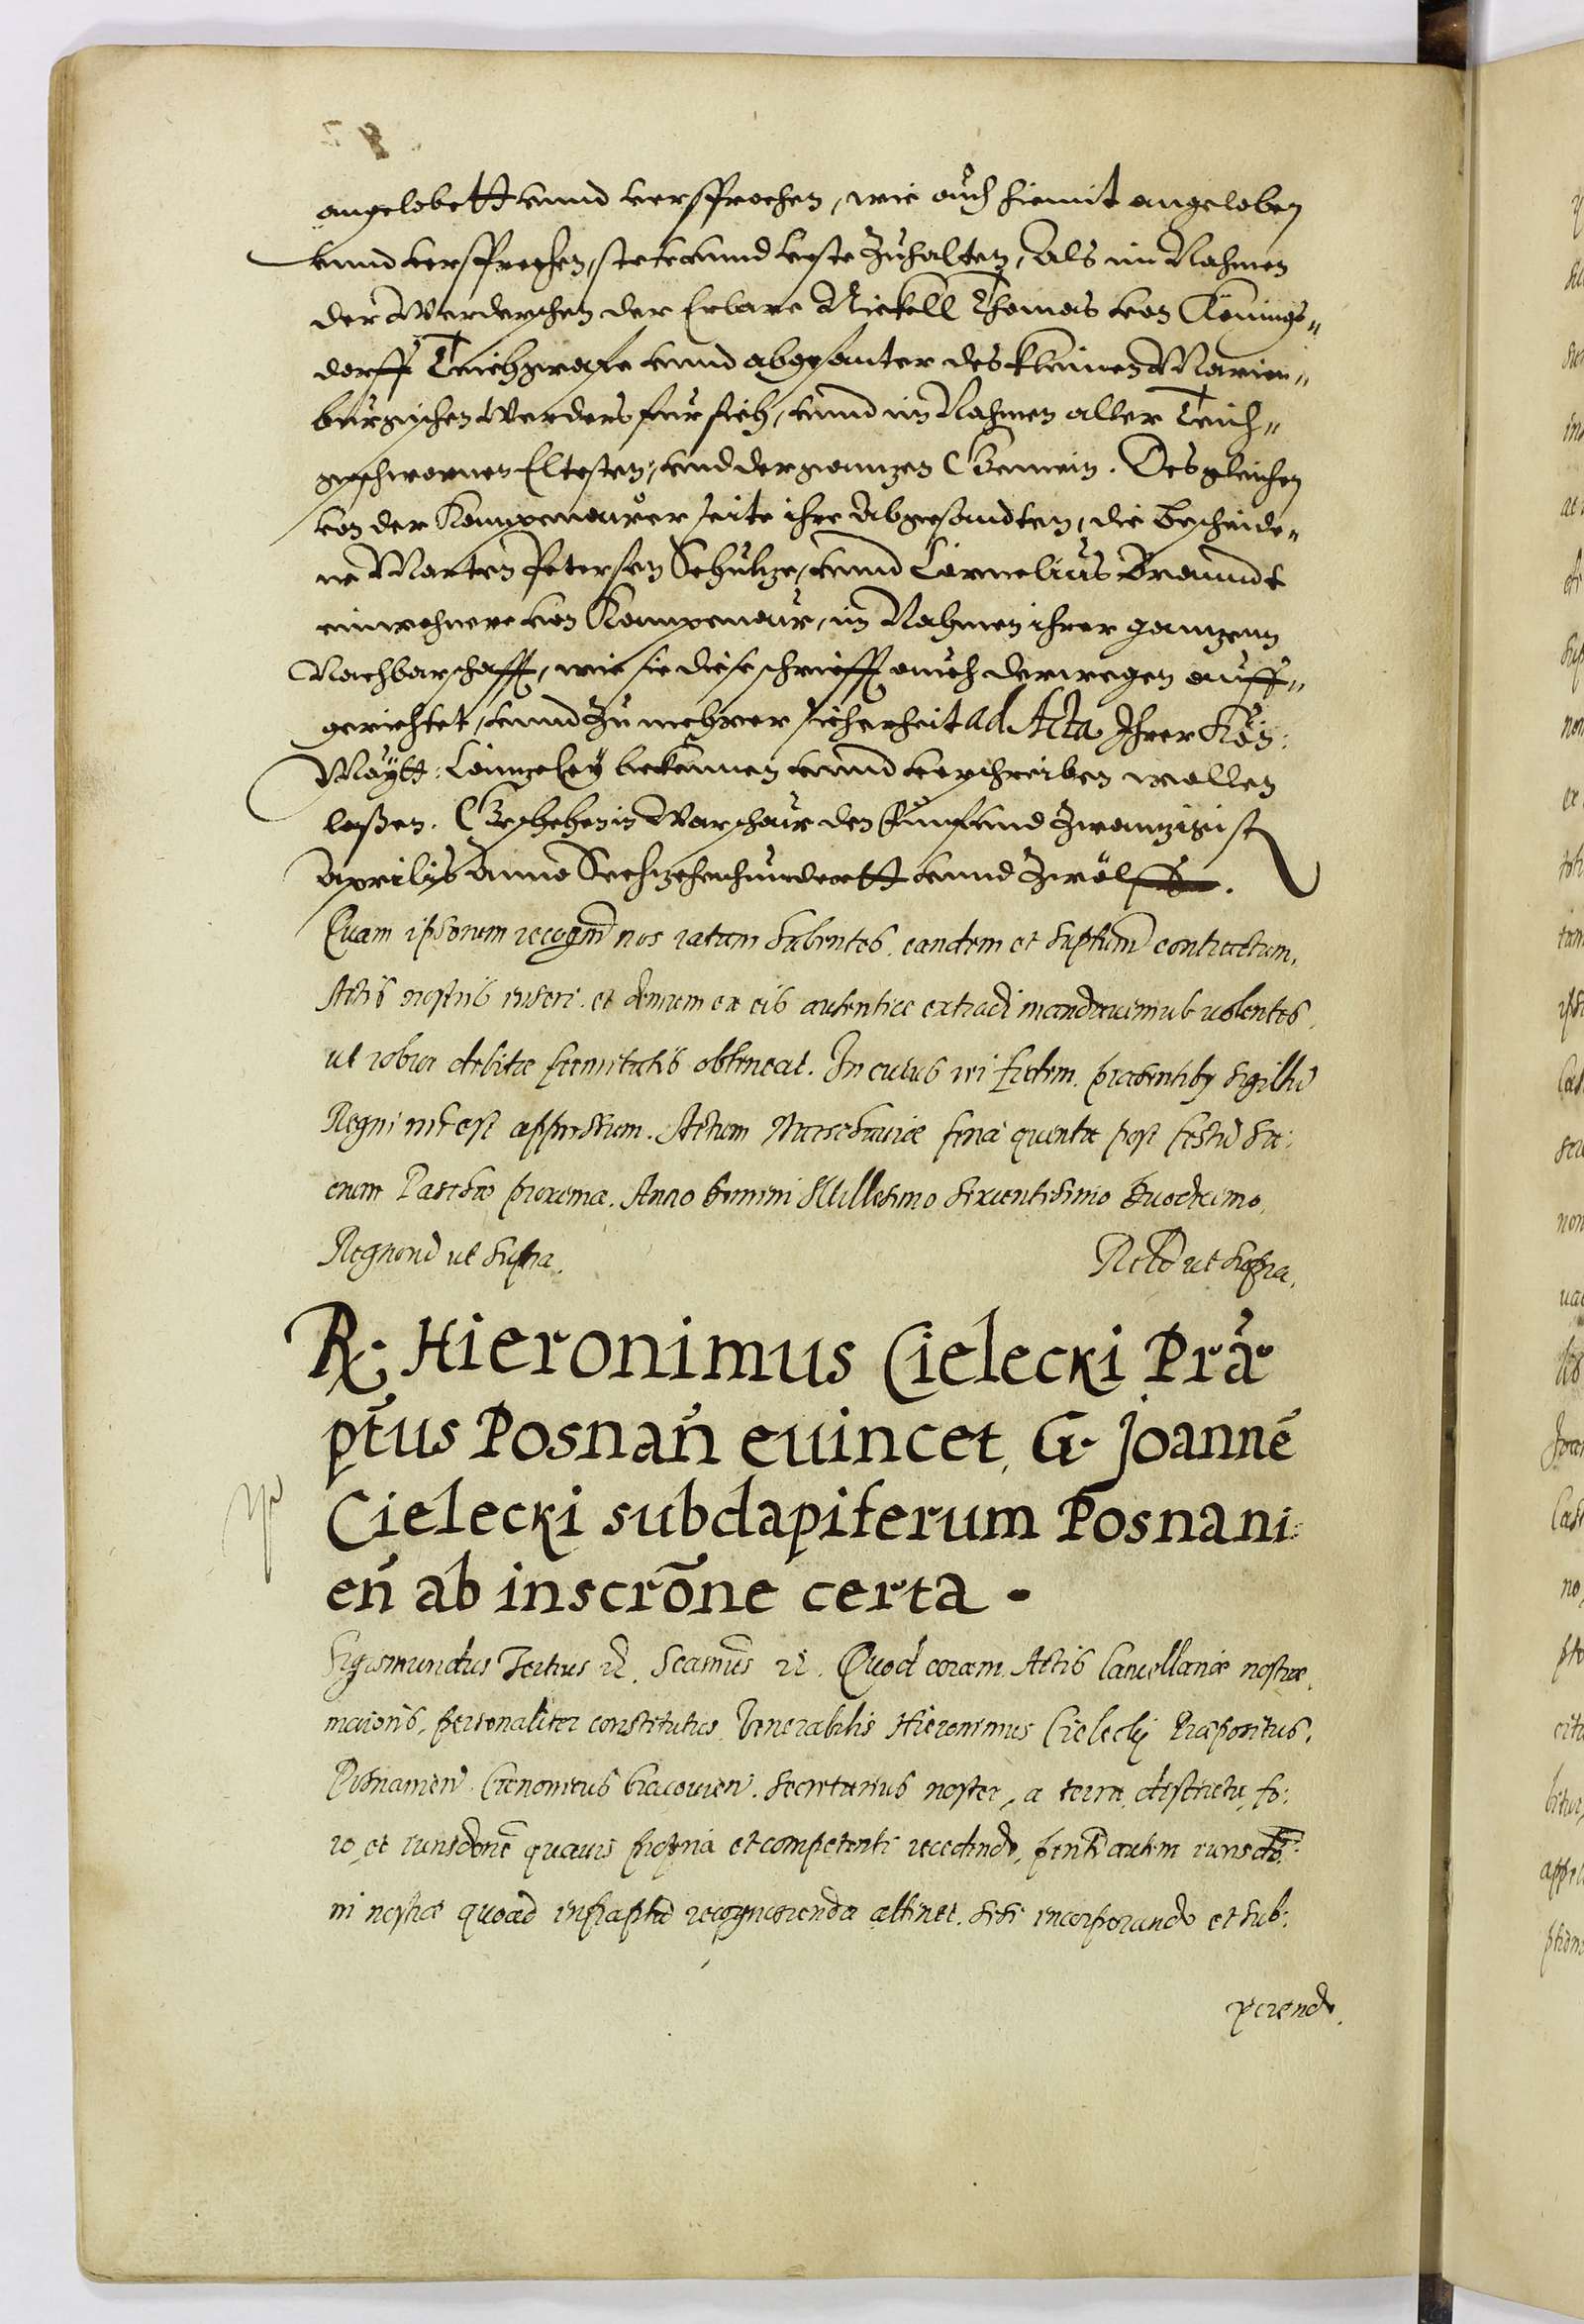 angelobett vnnd versprochen, wie auch hiemit angeloben
vnnd versprechen, stete vnnd veste zuhalten, Als im Nahmen
der Werderschen der Erbare Nickell Thomas von Königs=
dorff Teichgrafe vnnd abgesanter des kleinen Marien=
burgischen Werders fur sich, vnnd im Nahmen aller Teich=
geschwornen Eltesten, vnd der gantzen Gemein. Desgleichen
von der Kampenauer seite ihre Abgesandten, die bescheide=
ne Marten Petersen Schultze, vnnd Cornelius Braundt
einwohnere von Kampenaur, im Nahmen ihrer gantzenn
Nachbarschafft, wie sie diese schriefft auch derwegen auff=
gerichtet, vnnd zu mehrer sicherheit ad Acta Ihrer Kön:
Maytt: Cantzeley bekennen vnnd verschreiben wollen
laßen. Geschehen in Warschaur den funfvnd zwantzigist
Aprilis Anno Sechzehenhundertt vnnd zwölff.
Quam ipsorum recognñ nos ratam habentes, eandem et suptum contractum,
Actis nostris inseri, et demum ex eis autentice extradi mandavimus volentes,
ut robur debitæ firmitatis obtineat. In cuius rei fidem, præsentibus sigillũ
Regni nrĩ est appressum. Actum Warschauiæ feria quinta post festũ sa:
crum Paschæ proxima. Anno Domini Millesimo sexcentesimo Duodecimo,
Regnorũ ut supra. Relõ ut supra.
R. Hieronimus Cielecki Præ
ptũs Posnañ euincet, G. Joannẽ
Cielecki subdapiferum Posnani:
eñ ab inscrõne certa.
Sigismundus Tertius &c. Significamus &c. Quod coram Actis Cancellariæ nostræ
maioris, personaliter constitutus Venerabilis Hieronimus Cielecky Præpositus,
Posnanien. Canonicus Cracovien. Secretarius noster, a terra, districtu, fo:
ro, et iurisdõne quavis propria et competenti recedendo, pñti autem iurisdõ:
ni nostræ quoad infraptã recognoscenda attinet, sese incorporando et sub:
ijciendo